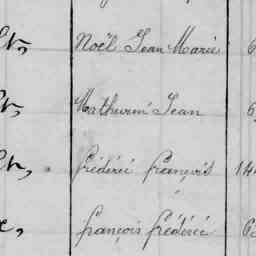 Noël Jean Marie 6
Mathurin Jean 6
frédéric françois 14
françois frédéric 6